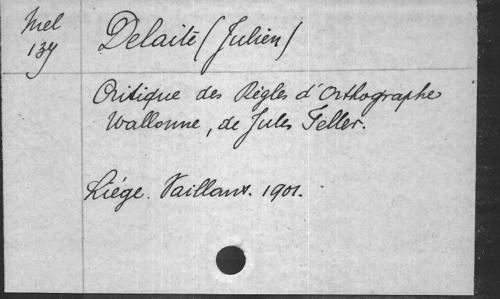 Mel
139
Delaite (Julien)
Critique des Règles d'Orthographe
Wallonne, de Jules Feller.
Liége. Vaillant. 1901.